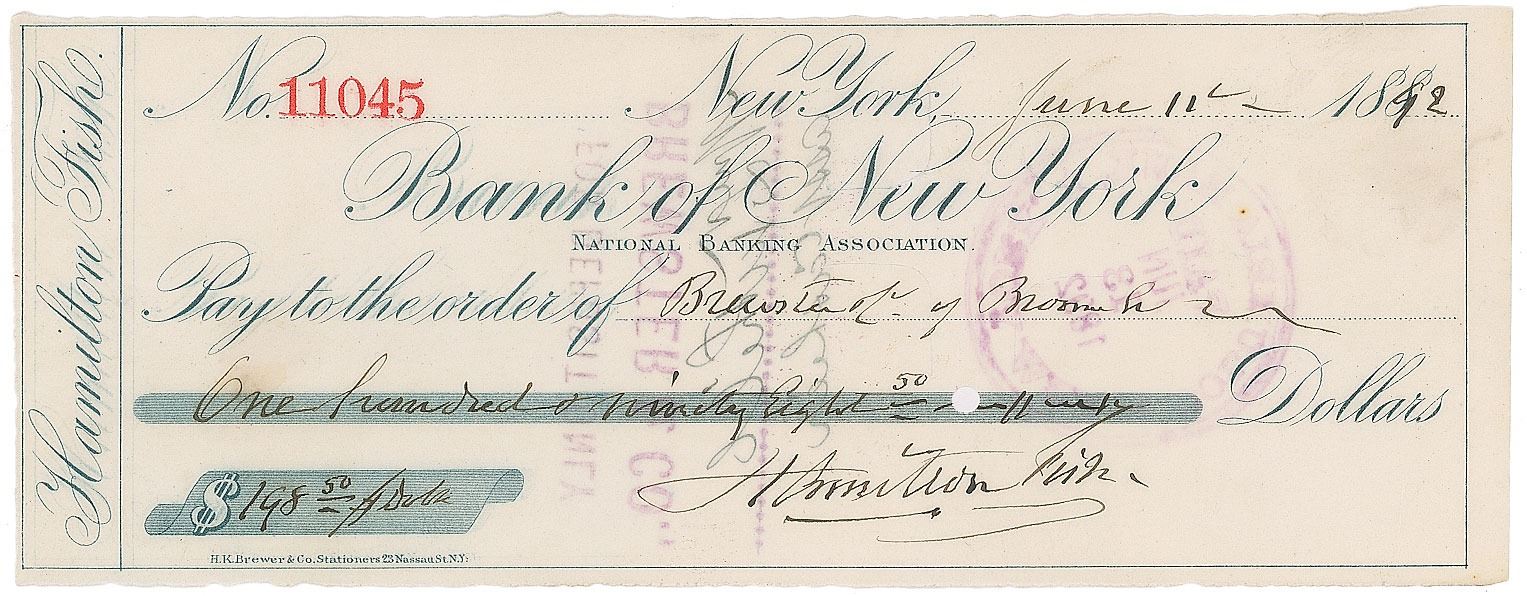 Hamilton Fish.
No. 11045 New York, June 11th 1892
Bank of New York
NATIONAL BANKING ASSOCIATION.
Pay to the order of Brewster & Co. of Broome St
One hundred & ninety Eight 50 Dollars
$198 50
Hamilton Fish.
H.K. Brewer & Co. Stationers 23 Nassau St. N.Y.
BREWSTER & CO.